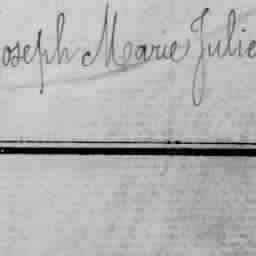 oseph Marie Julie